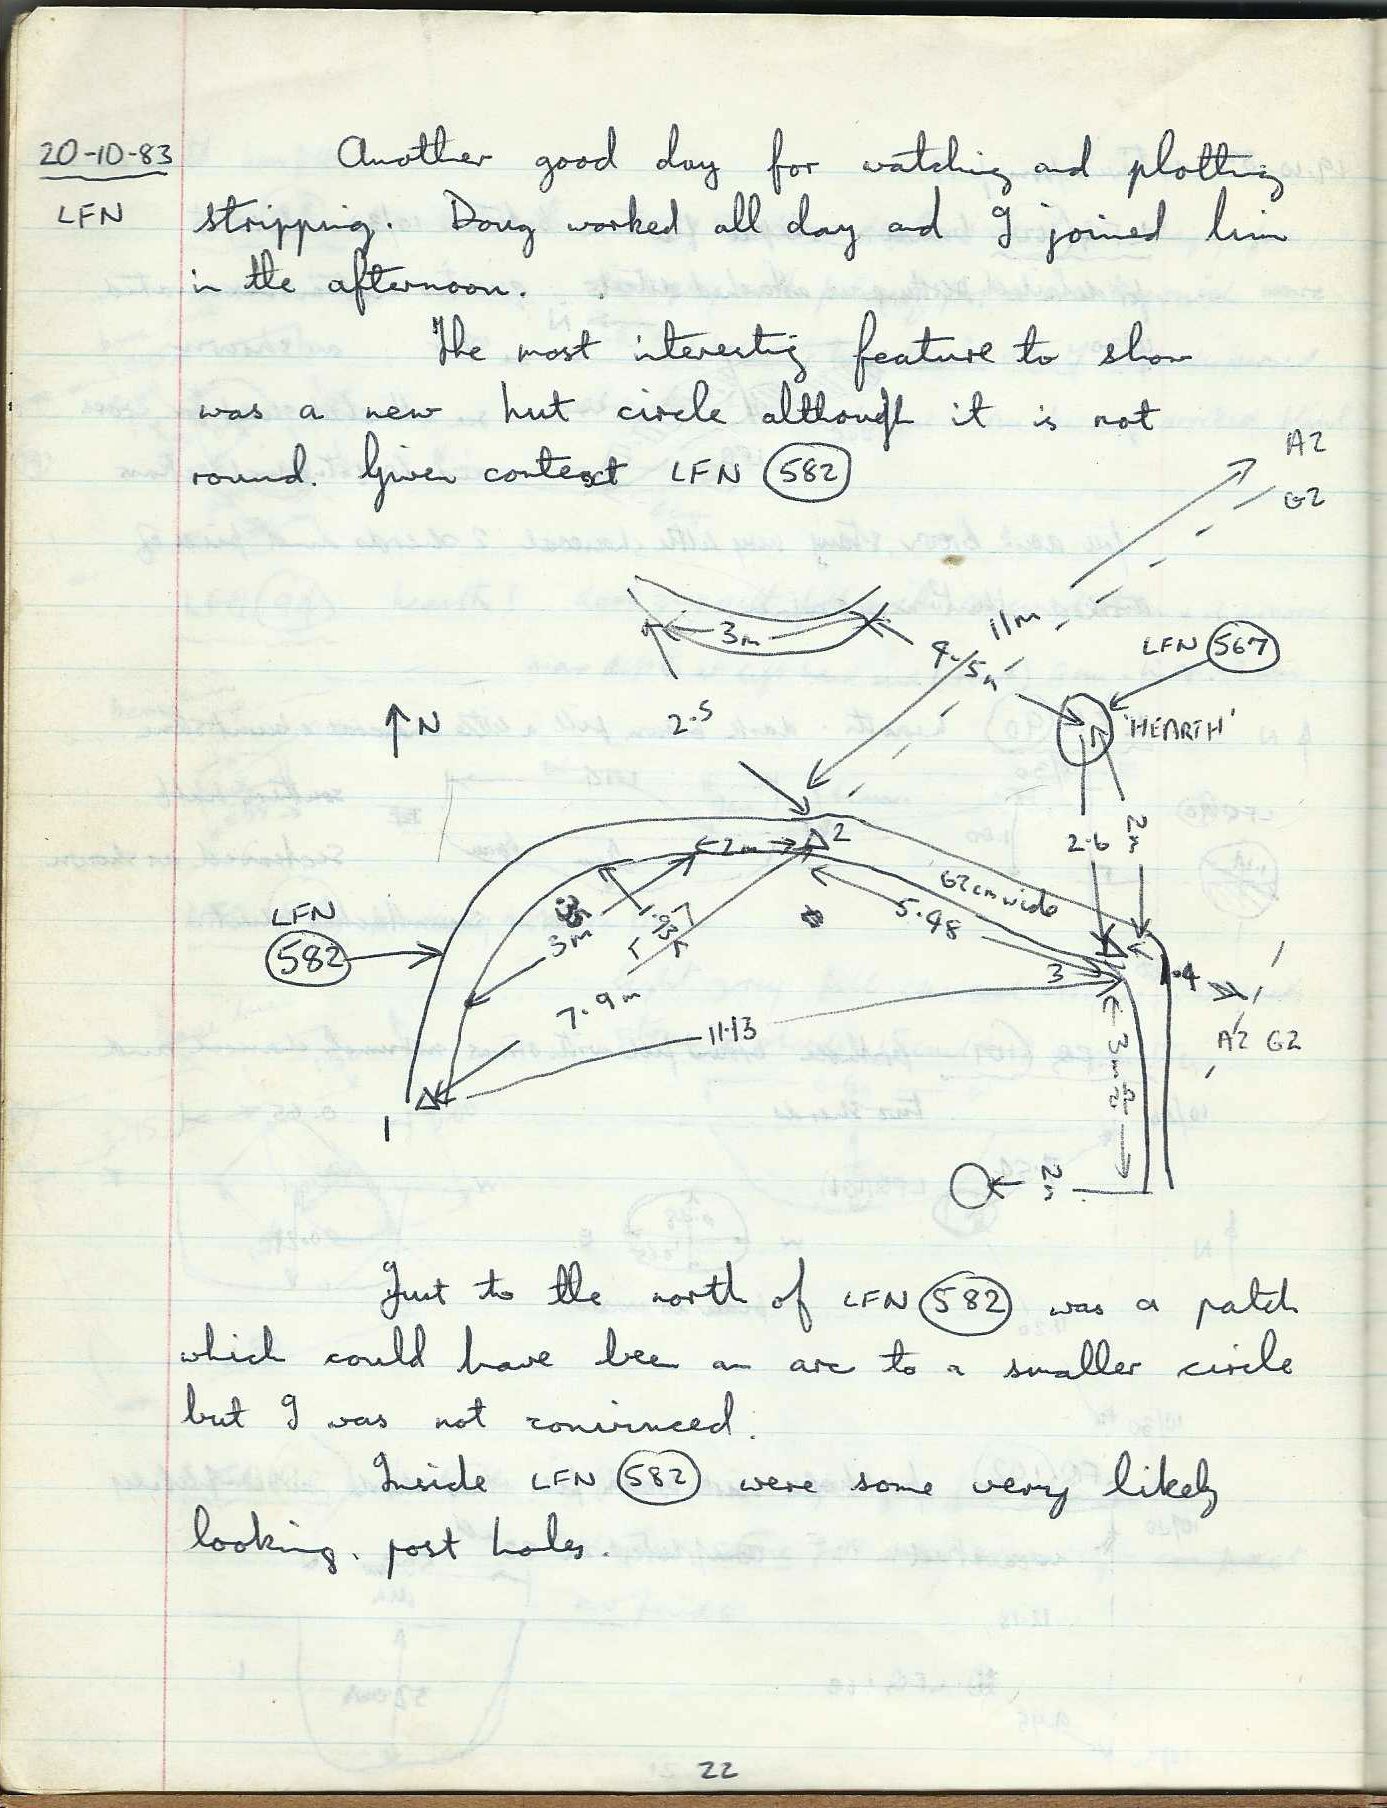 20-10-83
LFN
Another good day for watching and plotting
stripping. Doug worked all day and I joined him
in the afternoon.
The most interesting feature to show
was a new hut circle although it is not
round. Given context LFN 582
A2
G2
3m
11m
4.5m
LFN 567
'HEARTH'
2.5
N
2
2m
2.6
2m
62cm wide
5.48
LFN
582
3m
.97
7.9m
3
1.4
11.13
A2 G2
3m
1
2m
Just to the north of LFN 582 was a patch
which could have been an arc to a smaller circle
but I was not convinced.
Inside LFN 582 were some very likely
looking. post holes.
22